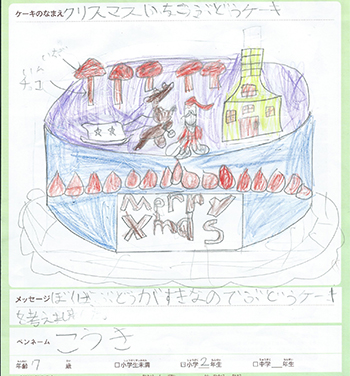 ケーキのなまえ クリスマスいちごぶどうケーキ
チョコ
Merry
Xmas
メッセージ ぼくはぶどうがすきなのでぶどうケーキ
を考えました
ペンネーム こうき
年齢 7 歳 □小学生未満 ☑小学 2 年生 □中学 年生